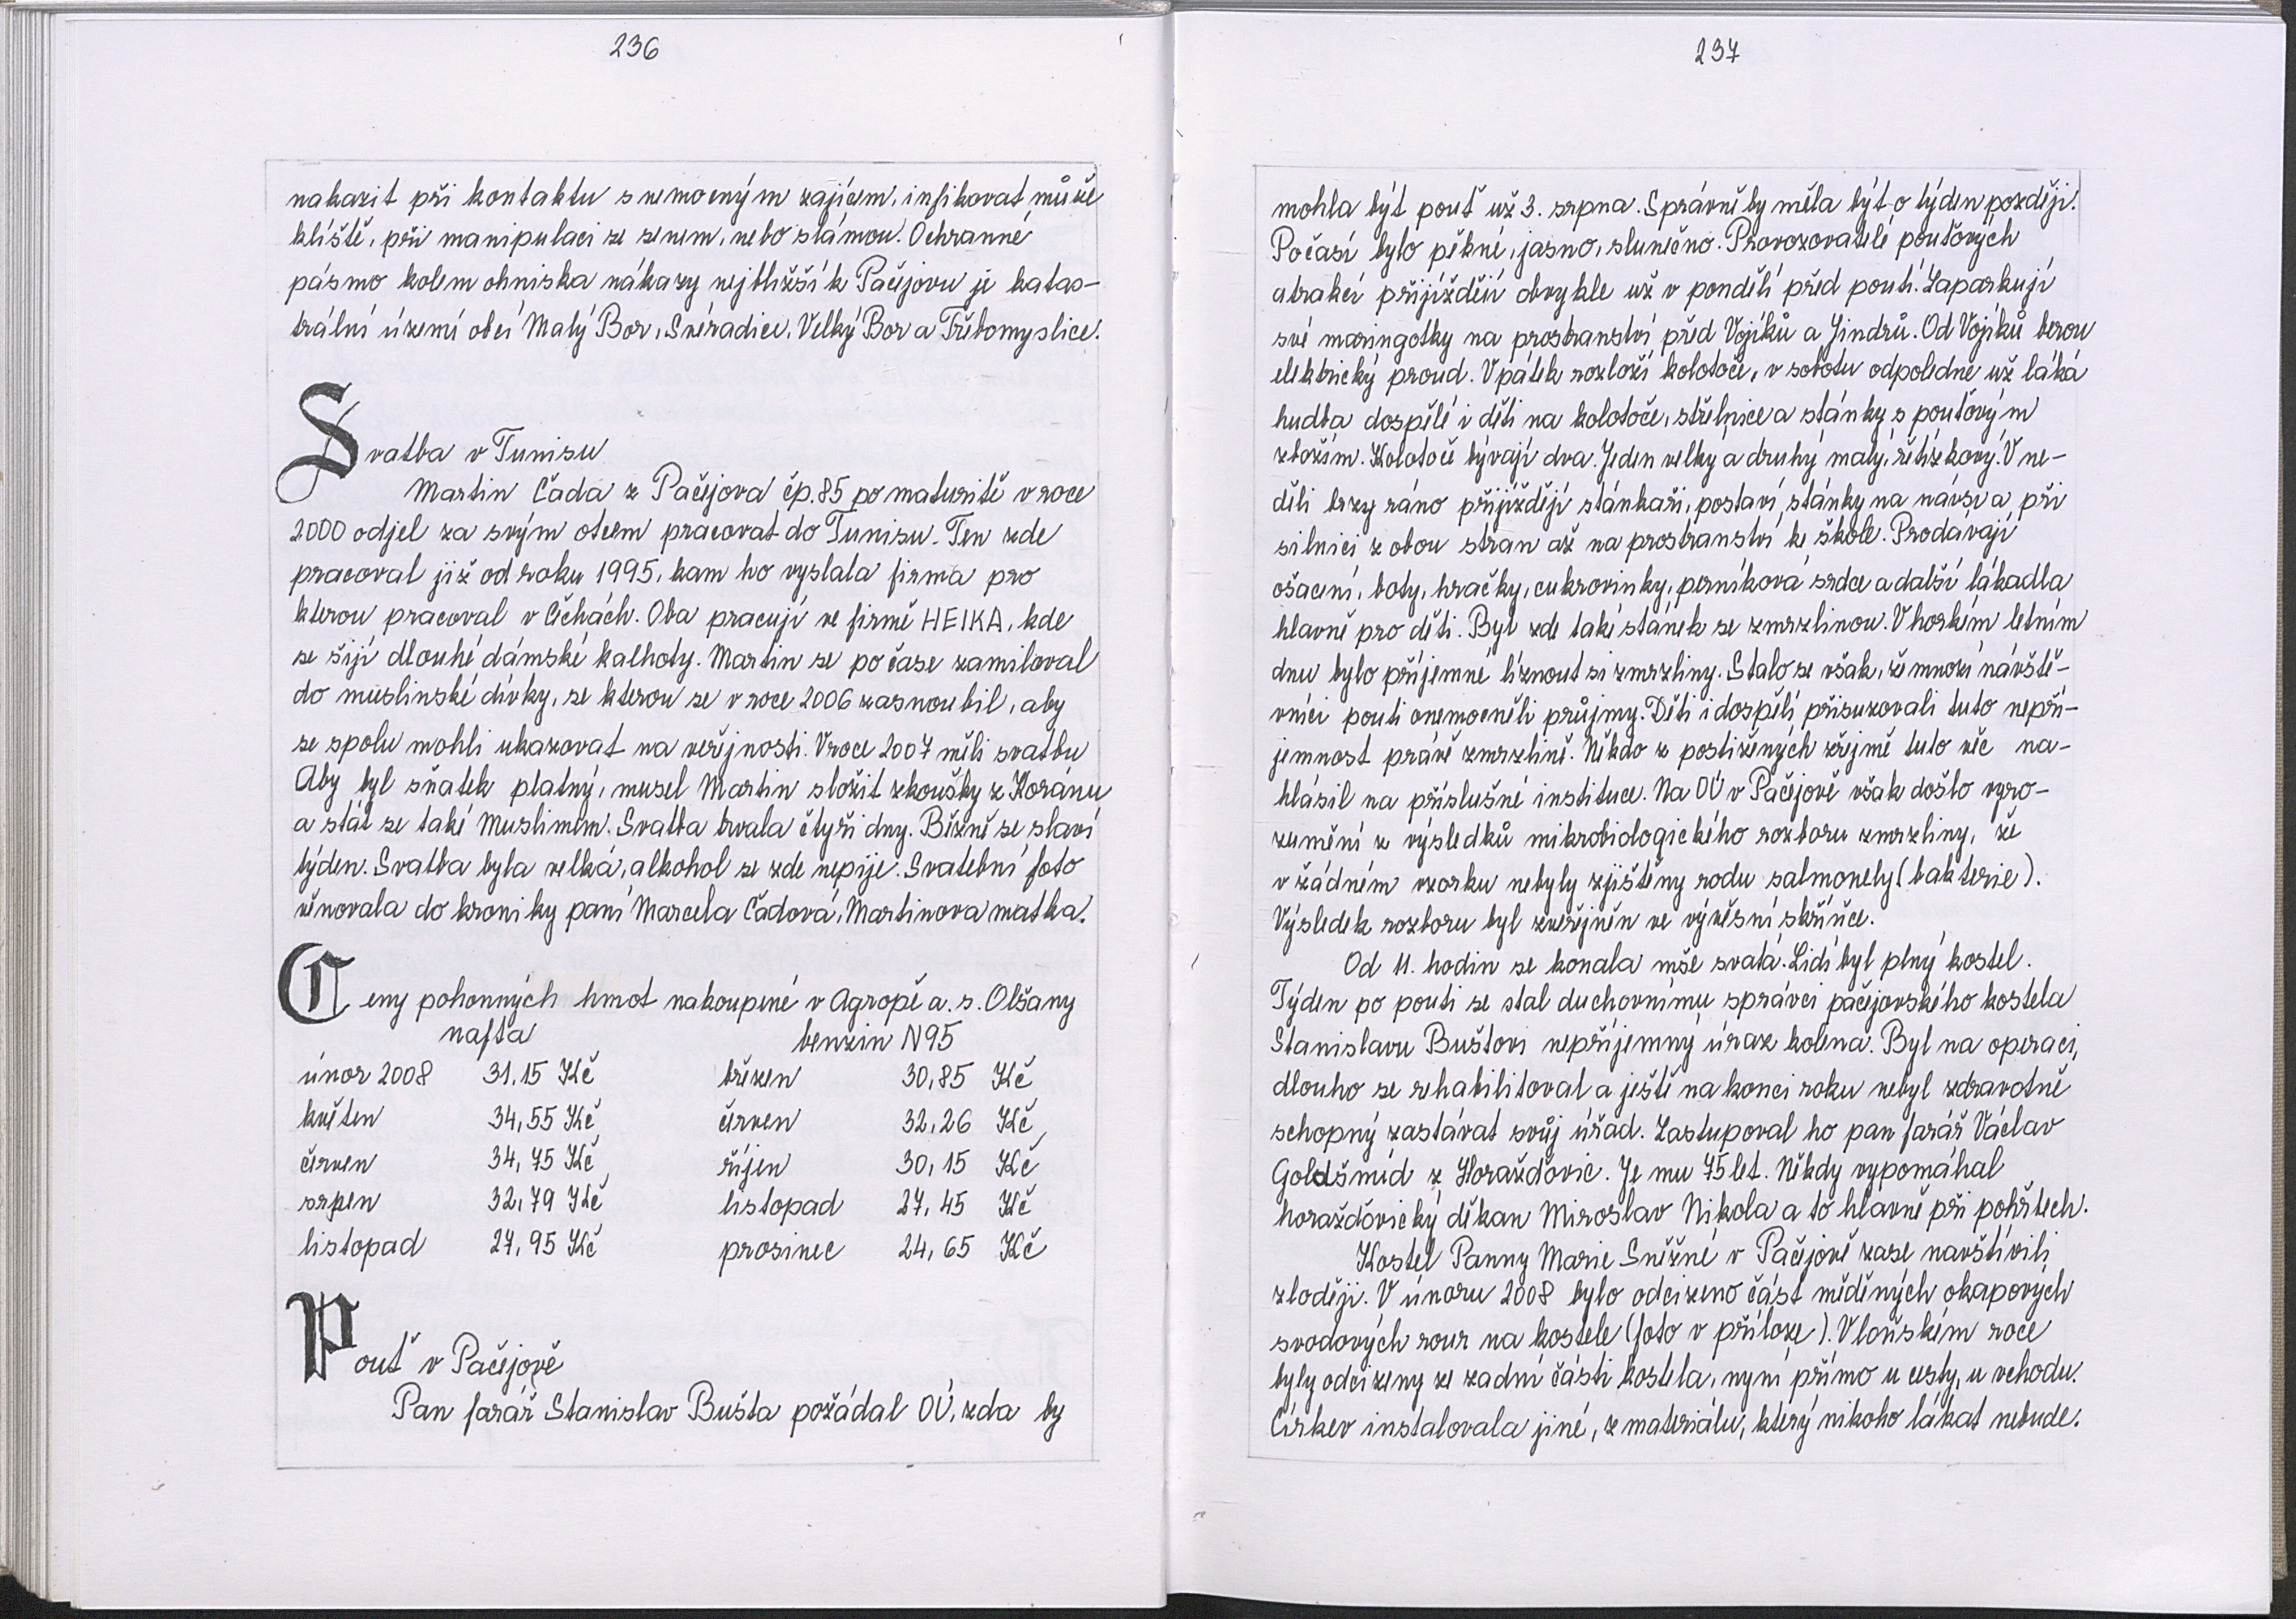 236
nakazit při kontaktu s nemocným zajícem, infikovat může
klíště, při manipulaci se senem, nebo slámou. Ochranné
pásmo kolem ohniska nákazy nejbližší k Pačejovu je katas-
trální území obcí Malý Bor, Svéradice, Velký Bor a Třebomyslice.
Svatba v Tunisu
Martin Čada z Pačejova čp. 85 po maturitě v roce
2000 odjel za svým otcem pracovat do Tunisu. Ten zde
pracoval již od roku 1995, kam ho vyslala firma pro
kterou pracoval v Čechách. Oba pracují ve firmě HEIKA, kde
se šijí dlouhé dámské kalhoty. Martin se po čase zamiloval
do muslinské dívky, se kterou se v roce 2006 zasnoubil, aby
se spolu mohli ukazovat na veřejnosti. V roce 2007 měli svatbu
Aby byl sňatek platný, musel Martin složit zkoušky z Koránu
a stát se také Muslimem. Svatba trvala čtyři dny. Běžně se slaví
týden. Svatba byla velká, alkohol se zde nepije. Svatební foto
věnovala do kroniky paní Marcela Čadová, Martinova matka.
Ceny pohonných hmot nakoupené v Agropě a. s. Olšany
nafta benzin N95
únor 2008 31,15 Kč březen 30,85 Kč
květen 34,55 Kč červen 32,26 Kč
červen 34,75 Kč říjen 30,15 Kč
srpen 32,79 Kč listopad 27,45 Kč
listopad 27,95 Kč prosinec 24,65 Kč
Pouť v Pačejově
Pan farář Stanislav Bušta požádal OÚ, zda by
237
mohla být pouť už 3. srpna. Správně by měla být o týden později.
Počasí bylo pěkné, jasno, slunečno. Provozovatelé pouťových
atrakcí přijíždějí obvykle už v pondělí před poutí. Zaparkují
své maringotky na prostranství před Vojíků a Jindrů. Od Vojíků berou
elektrický proud. V pátek rozloží kolotoče, v sobotu odpoledne už láká
hudba dospělé i děti na kolotoče, střelnice a stánky s pouťovým
zbožím. Kolotoče bývají dva. Jeden velký a druhý malý, řetízkový. V ne-
děli brzy ráno přijíždějí stánkaři, postaví stánky na návsi a při
silnici z obou stran až na prostranství ke škole. Prodávají
ošacení, boty, hračky, cukrovinky, perníková srdce a další lákadla
hlavně pro děti. Byl zde také stánek se zmrzlinou. V horkém letním
dnu bylo příjemné líznout si zmrzliny. Stalo se však, že mnozí návště-
vníci pouti onemocněli průjmy. Děti i dospělí přisuzovali tuto nepří-
jemnost právě zmrzlině. Někdo z postižených zřejmě tuto věc na-
hlásil na příslušné instituce. Na OÚ v Pačejově však došlo vyro-
zumění z výsledků mikrobiologického rozboru zmrzliny, že
v žádném vzorku nebyly zjištěny rodu salmonely (bakterie).
Výsledek rozboru byl zveřejněn ve vývěsní skříňce.
Od 11. hodin se konala mše svatá. Lidí byl plný kostel.
Týden po pouti se stal duchovnímu správci pačejovského kostela
Stanislavu Buštovi nepříjemný úraz kolena. Byl na operaci,
dlouho se rehabilitoval a ještě na konci roku nebyl zdravotně
schopný zastávat svůj úřad. Zastupoval ho pan farář Václav
Goldšmíd z Horažďovic. Je mu 75 let. Někdy vypomáhal
horažďovický děkan Miroslav Nikola a to hlavně při pohřbech.
Kostel Panny Marie Sněžné v Pačejově zase navštívili
zloději. V únoru 2008 bylo odcizeno část měděných okapových
svodových rour na kostele (foto v příloze). V loňském roce
byly odcizeny ze zadní části kostela, nyní přímo u cesty, u vchodu.
Církev instalovala jiné, z materiálu, který nikoho lákat nebude.